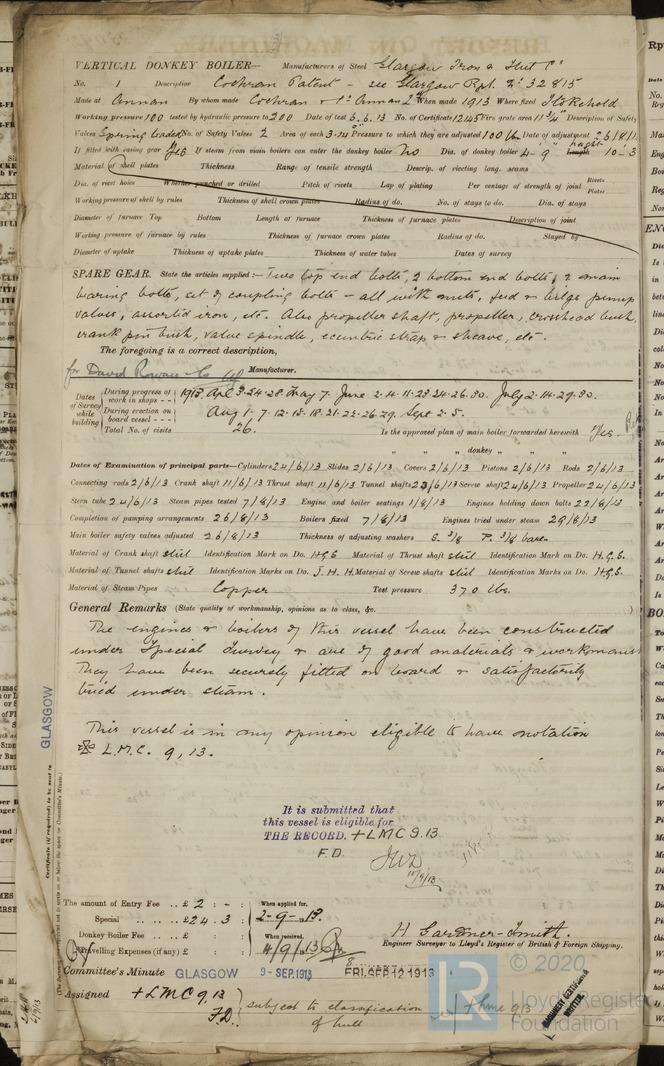 VERTICAL DONKEY BOILER— Manufacturers of Steel Glasgow Iron & Steel Co
No. 1 Description Cochran Patent - see Glasgow Rpt. No 32815
Made at Annan By whom made Cochran & Co Annan Ld When made 1913 Where fixed Stokehold
Working pressure 100 tested by hydraulic pressure to 200 Date of test 6.6.13 No. of Certificate 12145 Fire grate area 11¾ Description of Safety
Valves Spring loaded No. of Safety Valves 2 Area of each 3.14 Pressure to which they are adjusted 100 lbs Date of adjustment
If fitted with easing gear Yes If steam from main boilers can enter the donkey boiler No Dia. of donkey boiler 4-9 Length height 10-3
Material of shell plates Thickness Range of tensile strength Descrip. of riveting long. seams
Dia. of rivet holes Whether punched or drilled Pitch of rivets Lap of plating Per centage of strength of joint Rivets Plates
Working pressure of shell by rules Thickness of shell crown plates Radius of do. No. of stays to do. Dia. of stays
Diameter of furnace Top Bottom Length of furnace Thickness of furnace plates Description of joint
Working pressure of furnace by rules Thickness of furnace crown plates Radius of do. Stayed by
Diameter of uptake Thickness of uptake plates Thickness of water tubes Dates of survey
SPARE GEAR. State the articles supplied:— Two top end bolts, 2 bottom end bolts, 2 main
bearing bolts, set of coupling bolts - all with nuts, feed & bilge pump
valves, assorted iron, etc. Also propeller shaft, propeller, crosshead bush,
crank pin bush, valve spindle, eccentric strap & sheave, etc.
The foregoing is a correct description,
for David Rowan & Co Manufacturer.
Dates of Survey while building
During progress of work in shops - - 1913 Apl 3.24.28. May 7. June 2.11.23.24.26.30. July 2.14.29.30.
During erection on board vessel - - - Aug 1.7.12.13.18.21.22.26.29. Sept 2.5.
Total No. of visits 26. Is the approved plan of main boiler forwarded herewith Yes.
" " " donkey " " "
Dates of Examination of principal parts—Cylinders 24/6/13 Slides 2/6/13 Covers 2/6/13 Pistons 2/6/13 Rods 2/6/13
Connecting rods 2/6/13 Crank shaft 11/6/13 Thrust shaft 11/6/13 Tunnel shafts 23/6/13 Screw shaft 24/6/13 Propeller 24/6/13
Stern tube 24/6/13 Steam pipes tested 7/8/13 Engine and boiler seatings 1/8/13 Engines holding down bolts 22/8/13
Completion of pumping arrangements 26/8/13 Boilers fixed 7/8/13 Engines tried under steam 29/8/13
Main boiler safety valves adjusted 26/8/13 Thickness of adjusting washers S. 3/8 P. 3/8 bare
Material of Crank shaft steel Identification Mark on Do. H.G.S. Material of Thrust shaft steel Identification Mark on Do. H.G.S.
Material of Tunnel shafts steel Identification Marks on Do. J.H.H. Material of Screw shafts steel Identification Marks on Do. H.G.S.
Material of Steam Pipes Copper Test pressure 370 lbs.
General Remarks (State quality of workmanship, opinions as to class, &c.
The engines & boilers of this vessel have been constructed
under Special Survey & are of good materials & workmans
They have been securely fitted on board & satisfactorily
tried under steam.
This vessel is in my opinion eligible to have notation
L.M.C. 9,13.
GLASGOW
Certificate (if required) to be sent to
It is submitted that
this vessel is eligible for
THE RECORD. + LMC 9.13
F.D.
The amount of Entry Fee .. £ 2 : - : When applied for,
Special .. .. .. £ 24 . 3 : 2-9-13.
Donkey Boiler Fee .. .. £ : : When received,
Travelling Expenses (if any) £ : : 4/9/13
H. Gardner-Smith.
Engineer Surveyor to Lloyd's Register of British & Foreign Shipping.
Committee's Minute GLASGOW 9 - SEP. 1913 FRI. SEP. 12 1913
Assigned + LMC 9,13
F.D. subject to classification
of hull
MACHINERY CERTIFICATE
WRITTEN.
LR
© 2020
Lloyd's Register
Foundation